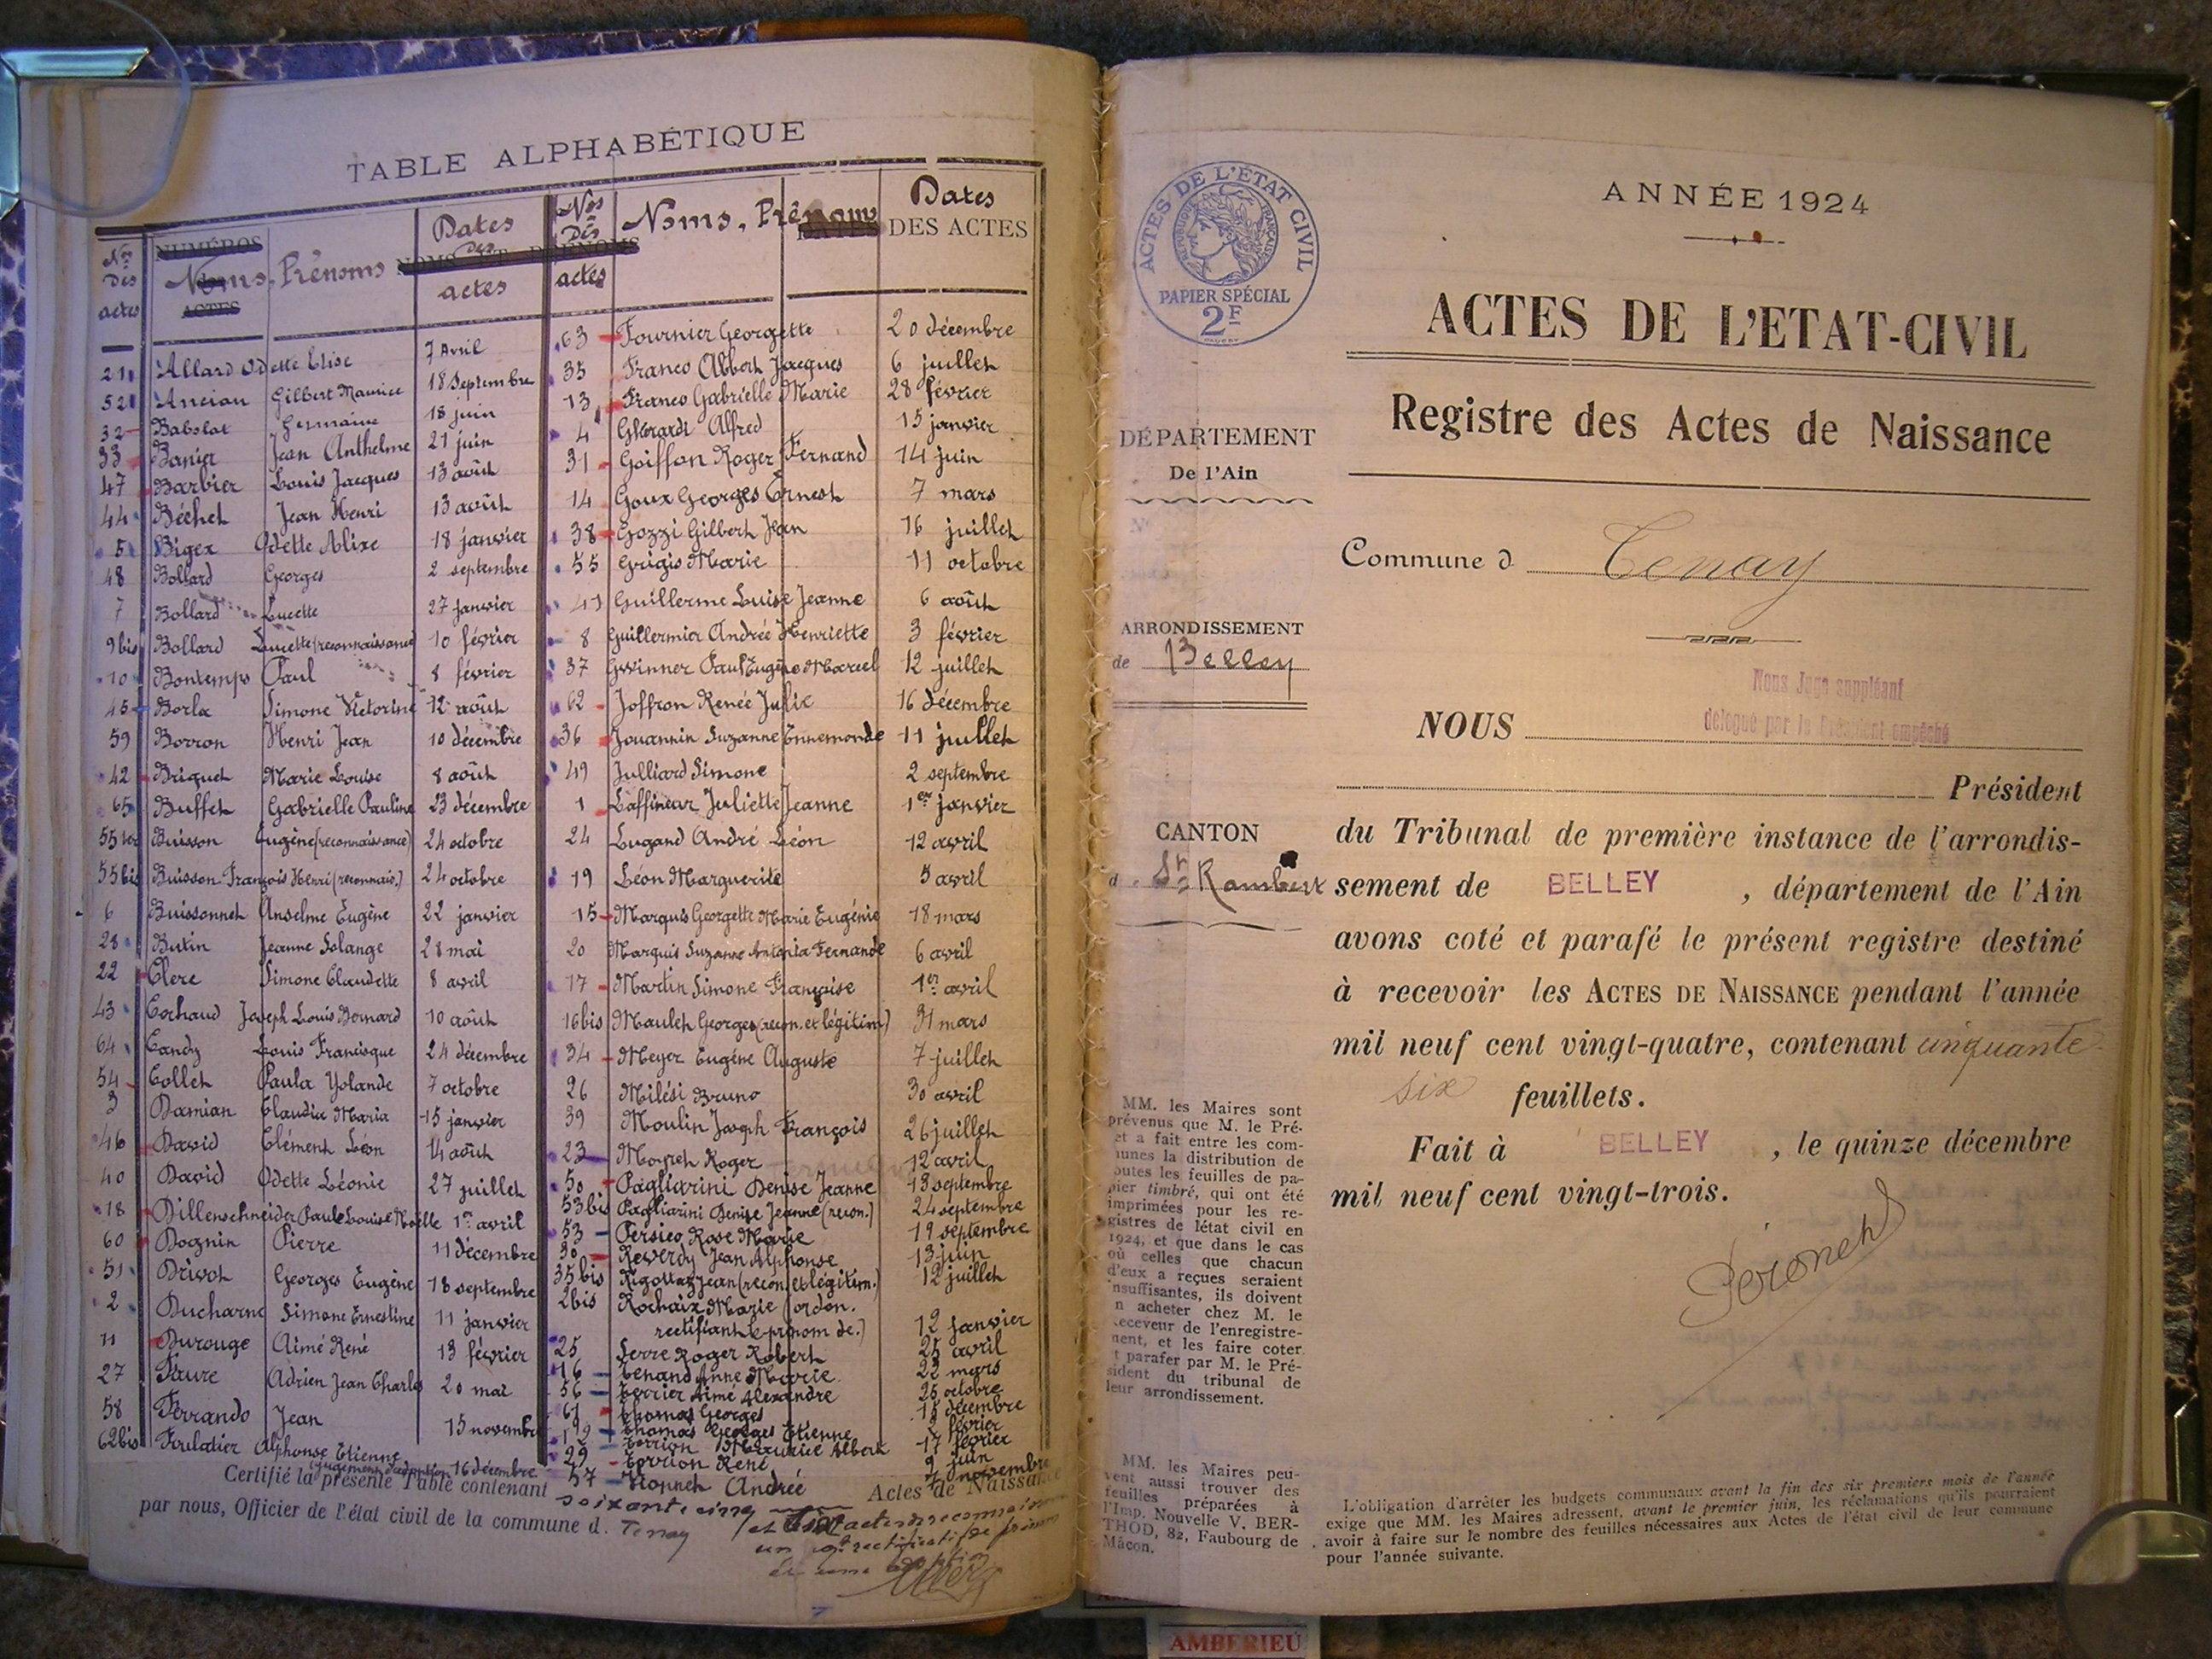 TABLE ALPHABÉTIQUE
Nos Des actes
Noms, Prénoms
Dates Des actes
Nos Des actes
Noms, Prénoms
Dates DES ACTES
21 Allard Odette Elise 7 Avril
52 Ancian Gilbert Maurice 18 Septembre
32 Babolat Germaine 18 juin
33 Banier Jean Anthelme 21 juin
47 Barbier Louis Jacques 13 août
44 Béchet Jean Henri 13 août
5 Bigex Odette Alixe 18 janvier
48 Bollard Georges 2 septembre
7 Bollard Lucette 27 janvier
9bis Bollard Lucette (reconnaissance) 10 février
10 Bontemps Paul 8 février
45 Borla Simone Victorine 12 août
59 Borron Henri Jean 10 décembre
42 Briquet Marie Louise 8 août
65 Buffet Gabrielle Pauline 23 décembre
55 ter Buisson Eugène (reconnaissance) 24 octobre
55bis Buisson François Henri (reconnais.) 24 octobre
6 Buissonnet Anselme Eugène 22 janvier
28 Butin Jeanne Solange 28 mai
22 Clerc Simone Claudette 8 avril
43 Cochaud Joseph Louis Bernard 10 août
64 Candy Louis Francisque 24 décembre
54 Collet Paula Yolande 7 octobre
3 Damian Claudia Maria 15 janvier
46 David Clément Léon 14 août
40 David Odette Léonie 27 juillet
18 Dillenschneider Paule Louise Noëlle 1er avril
60 Dognin Pierre 11 décembre
51 Drivot Georges Eugène 18 septembre
2 Ducharne Simone Ernestine 11 janvier
11 Durouge Aimé René 13 février
27 Faure Adrien Jean Charles 20 mai
58 Ferrando Jean 15 novembre
62bis Fouladier Alphonse Etienne
(jugement d'adoption) 16 décembre
63 Fournier Georgette 20 décembre
35 Franco Albert Jacques 6 juillet
13 Franco Gabrielle Marie 28 février
4 Ghirardi Alfred 15 janvier
31 Goiffon Roger Fernand 14 juin
14 Goux Georges Ernest 7 mars
38 Gozzi Gilbert Jean 16 juillet
55 Grigis Marie 11 octobre
41 Guillerme Louise Jeanne 6 août
8 Guillermier Andrée Henriette 3 février
37 Gwinner Paul Eugène Marcel 12 juillet
62 Joffron Renée Julie 16 décembre
36 Jouannin Suzanne Ennemonde 11 juillet
49 Julliard Simone 2 septembre
1 Laffineur Juliette Jeanne 1er janvier
24 Lugand André Léon 12 avril
19 Léon Marguerite 5 avril
15 Marquis Georgette Marie Eugénie 18 mars
20 Marquis Suzanne Antonia Fernande 6 avril
17 Martin Simone Françoise 1er avril
16bis Maulet Georges (recon. et légitim.) 31 mars
34 Meyer Eugène Auguste 7 juillet
26 Milési Bruno 30 avril
39 Moulin Joseph François 26 juillet
23 Moyret Roger 12 avril
50 Pagliarini Denise Jeanne 13 septembre
53bis Pagliarini Denise Jeanne (recon.) 24 septembre
53 Persico Rose Marie 19 septembre
30 Reverdy Jean Alphonse 13 juin
35bis Rigottaz Jean (recon. et légitim.) 12 juillet
2bis Rochaix Marie (ordon.
rectifiant le prénom de.) 12 janvier
25 Serre Roger Robert 25 avril
16 Tenand Anne Marie 22 mars
56 Terrier Aimé Alexandre 25 octobre
61 Thomas Georges 15 décembre
Thomas Georges Etienne février
12 Terrion Maurice Albert 17 février
29 Terrion René 9 juin
57 André 7 novembre
Certifié la présente Table contenant soixante cinq Actes de Naissance
par nous, Officier de l'état civil de la commune d. Tenay et actes de reconnaissance
un rectificatif de prénom
et une adoption
ACTES DE L'ÉTAT CIVIL
RÉPUBLIQUE FRANÇAISE
PAPIER SPÉCIAL
2F
DÉPARTEMENT
De l'Ain
ARRONDISSEMENT
de Belley
CANTON
d St Rambert
MM. les Maires sont
prévenus que M. le Pré-
et a fait entre les com-
munes la distribution de
toutes les feuilles de pa-
pier timbré, qui ont été
imprimées pour les re-
gistres de l'état civil en
1924, et que dans le cas
où celles que chacun
d'eux a reçues seraient
insuffisantes, ils doivent
n acheter chez M. le
receveur de l'enregistre-
ment, et les faire coter
t parafer par M. le Pré-
sident du tribunal de
leur arrondissement.
MM. les Maires peu-
vent aussi trouver des
feuilles préparées à
l'Imp. Nouvelle V. BER-
THOD, 82, Faubourg de
Mâcon.
ANNÉE 1924
ACTES DE L'ETAT-CIVIL
Registre des Actes de Naissance
Commune d Tenay
Nous Juge suppléant
délégué par le Président empêché
NOUS
Président
du Tribunal de première instance de l'arrondis-
sement de BELLEY , département de l'Ain
avons coté et parafé le présent registre destiné
à recevoir les ACTES DE NAISSANCE pendant l'année
mil neuf cent vingt-quatre, contenant cinquante
six feuillets.
Fait à BELLEY , le quinze décembre
mil neuf cent vingt-trois.
Péronet
L'obligation d'arrêter les budgets communaux avant la fin des six premiers mois de l'année
exige que MM. les Maires adressent, avant le premier juin, les réclamations qu'ils pourraient
avoir à faire sur le nombre des feuilles nécessaires aux Actes de l'état civil de leur commune
pour l'année suivante.
AMBERIEU